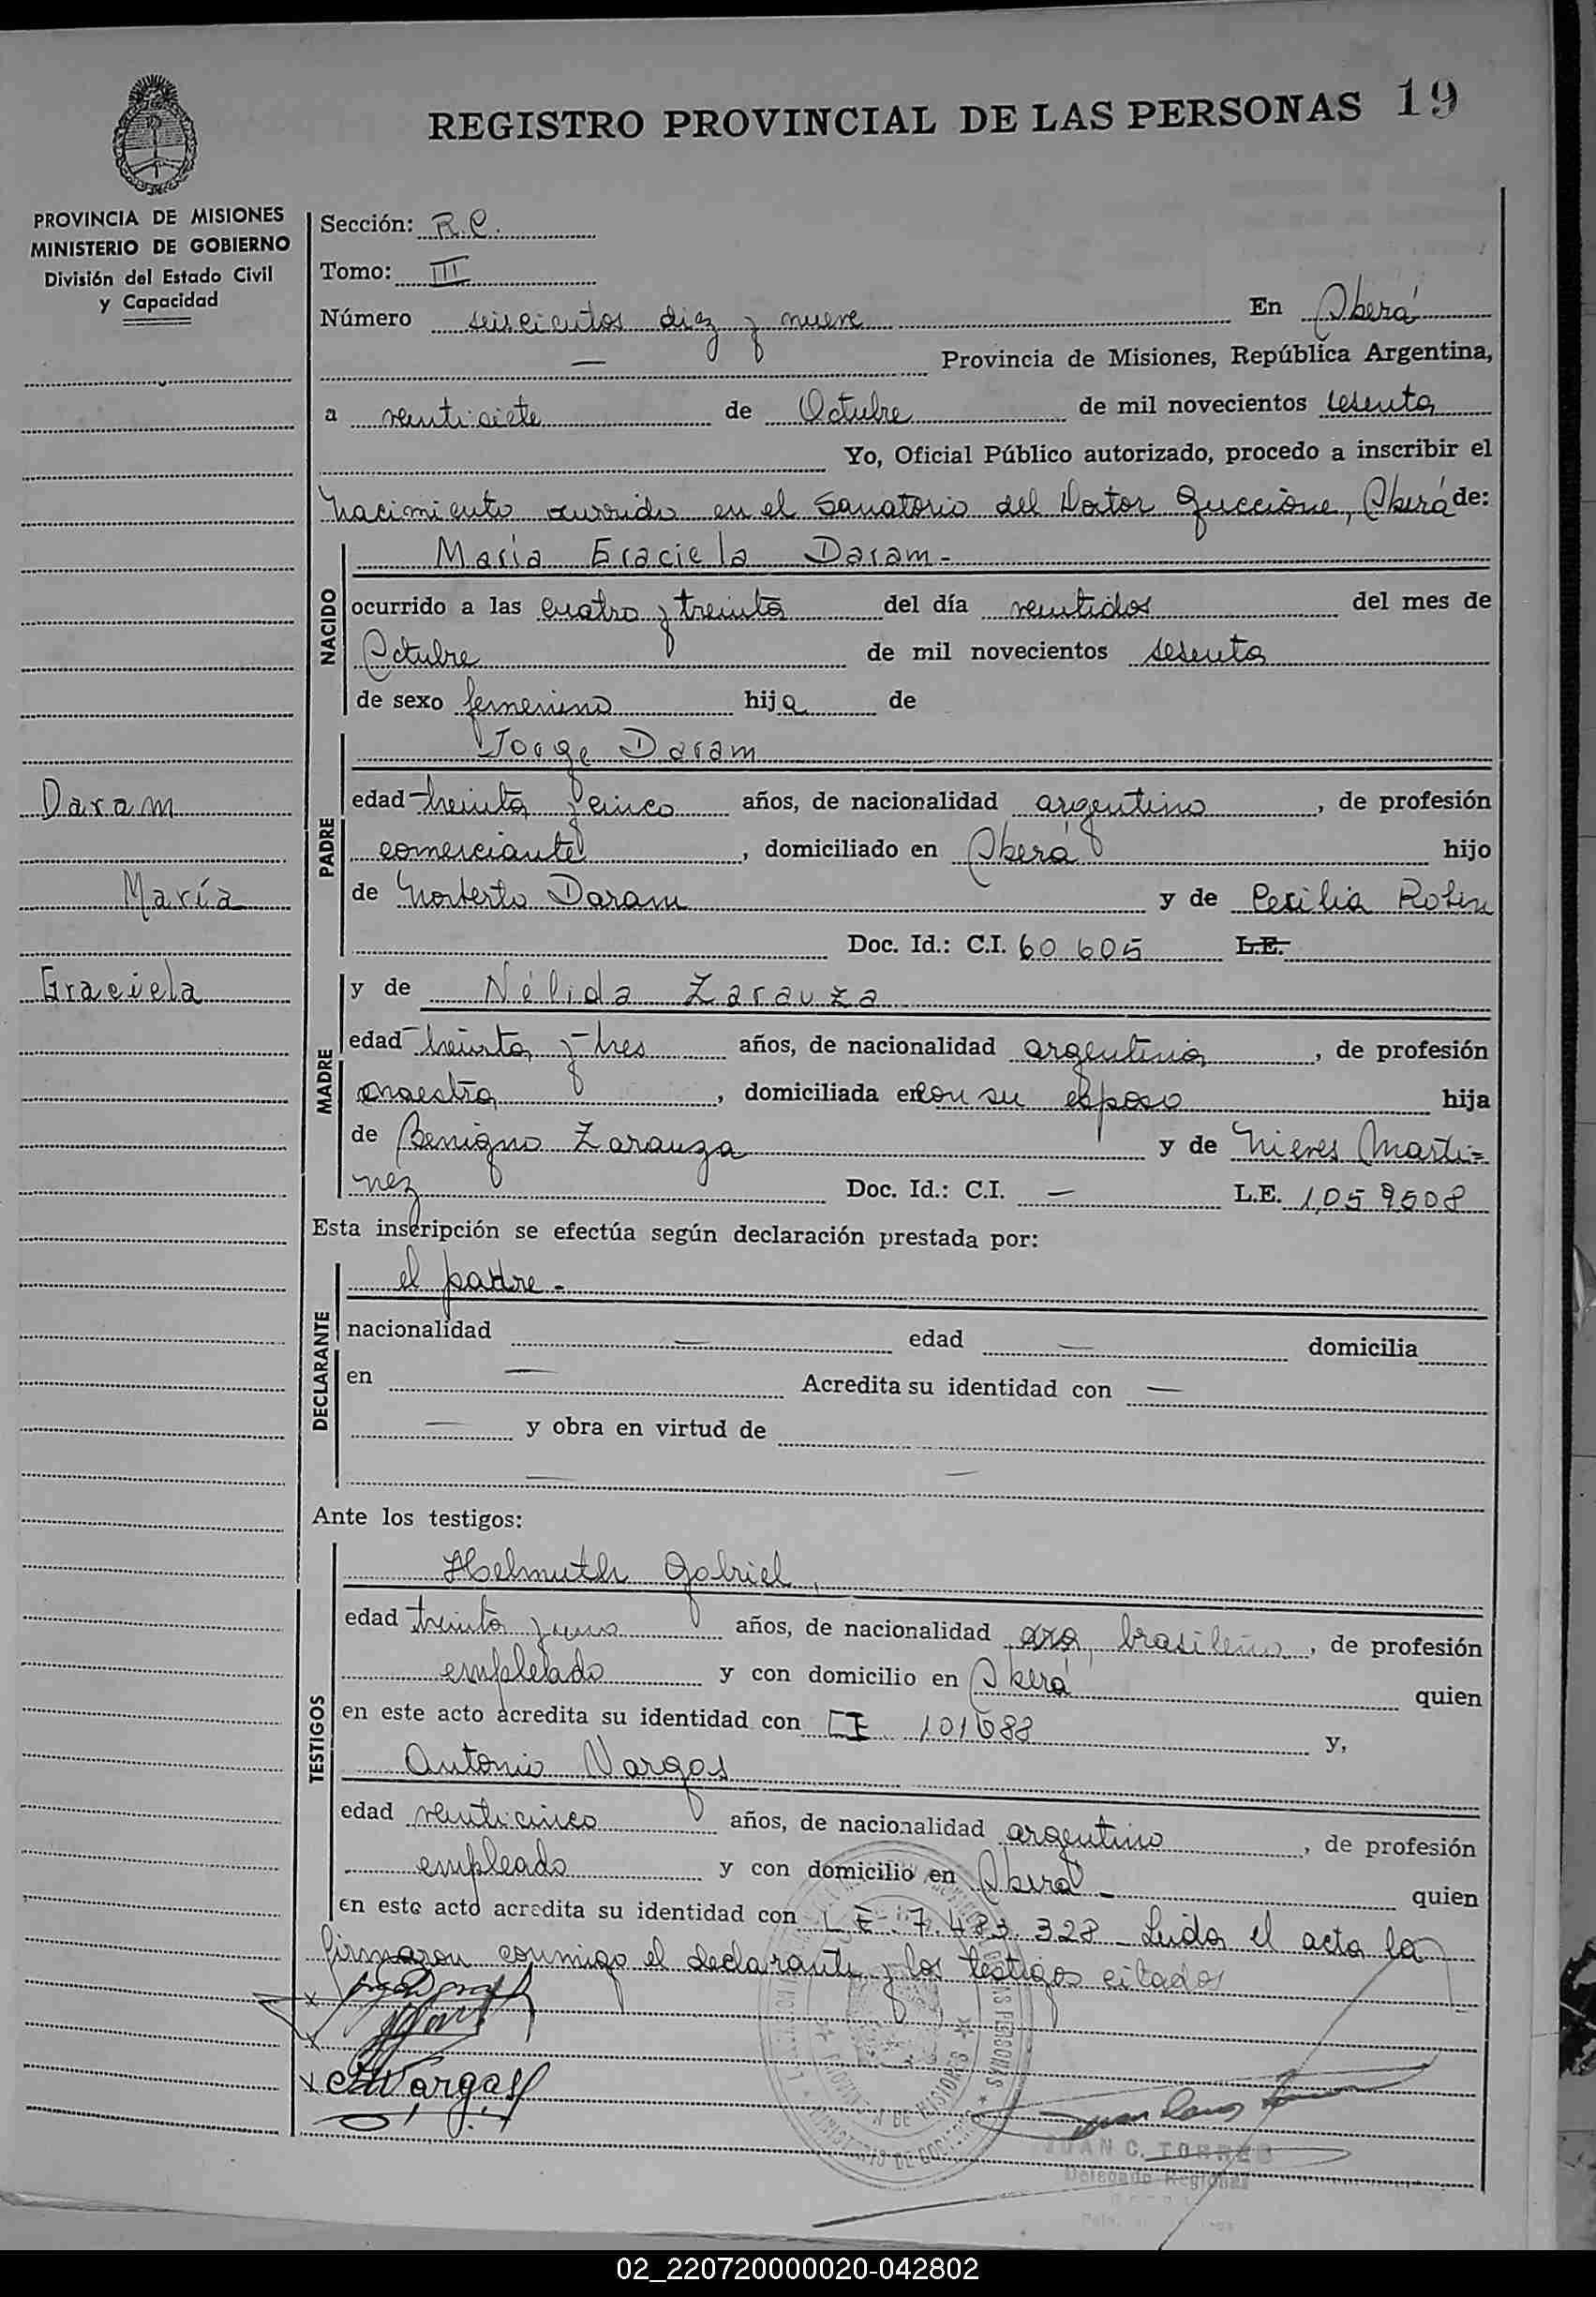 REGISTRO PROVINCIAL DE LAS PERSONAS 19
PROVINCIA DE MISIONES
MINISTERIO DE GOBIERNO
División del Estado Civil
y Capacidad
Daram
María
Graciela
Sección: R.C.
Tomo: III
Número seiscientos diez y nueve En Oberá
— Provincia de Misiones, República Argentina,
a veintisiete de Octubre de mil novecientos sesenta
Yo, Oficial Público autorizado, procedo a inscribir el
nacimiento ocurrido en el Sanatorio del Doctor Guccione, Oberá de:
NACIDO
María Graciela Daram-
ocurrido a las cuatro y treinta del día veintidos del mes de
Octubre de mil novecientos sesenta
de sexo femenino hija de
PADRE
Jorge Daram
edad treinta y cinco años, de nacionalidad argentino, de profesión
comerciante, domiciliado en Oberá hijo
de Norberto Daram y de Cecilia Rotin
Doc. Id.: C.I. 60 605 L.E.
MADRE
y de Nélida Zarauza
edad treinta y tres años, de nacionalidad argentina, de profesión
maestra, domiciliada en con su esposo hija
de Benigno Zarauza y de Nieves Marti=
nez Doc. Id.: C.I. — L.E. 1,059508
Esta inscripción se efectúa según declaración prestada por:
DECLARANTE
el padre-
nacionalidad — edad — domicilia
en — Acredita su identidad con —
— y obra en virtud de
— —
Ante los testigos:
TESTIGOS
Helmuth Gabriel,
edad treinta y uno años, de nacionalidad brasileño, de profesión
empleado y con domicilio en Oberá quien
en este acto acredita su identidad con CI 101688 y,
Antonio Vargas
edad veinticinco años, de nacionalidad argentino, de profesión
empleado y con domicilio en Oberá - quien
en este acto acredita su identidad con L E. 7.483.328 - Leida el acta la
firmaron conmigo el declarante y los testigos citados
x
x
x AVargas
PROVINCIA DE MISIONES
MINISTERIO DE GOBIERNO
JUAN C. TORRES
Delegado Regional
02_220720000020-042802